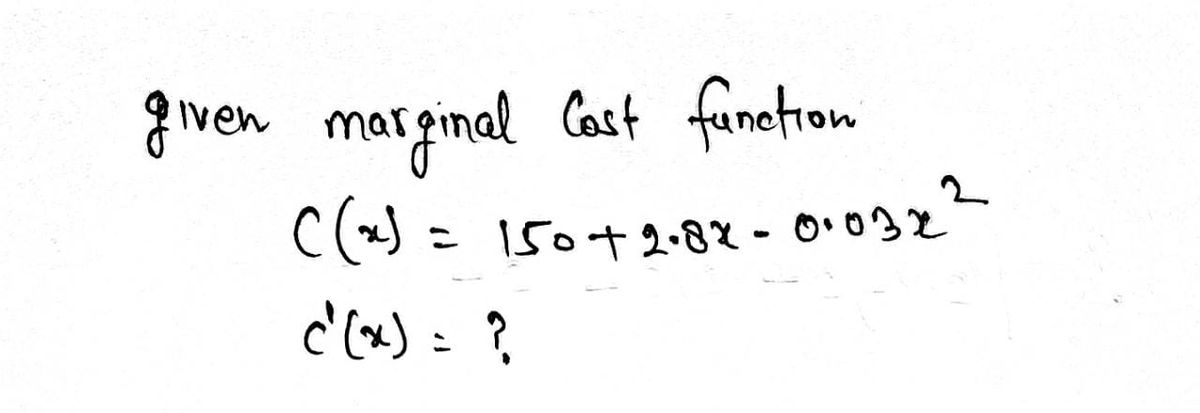 given marginal Cost function
C(x) = 150 + 2.8x - 0.03x²
c'(x) = ?